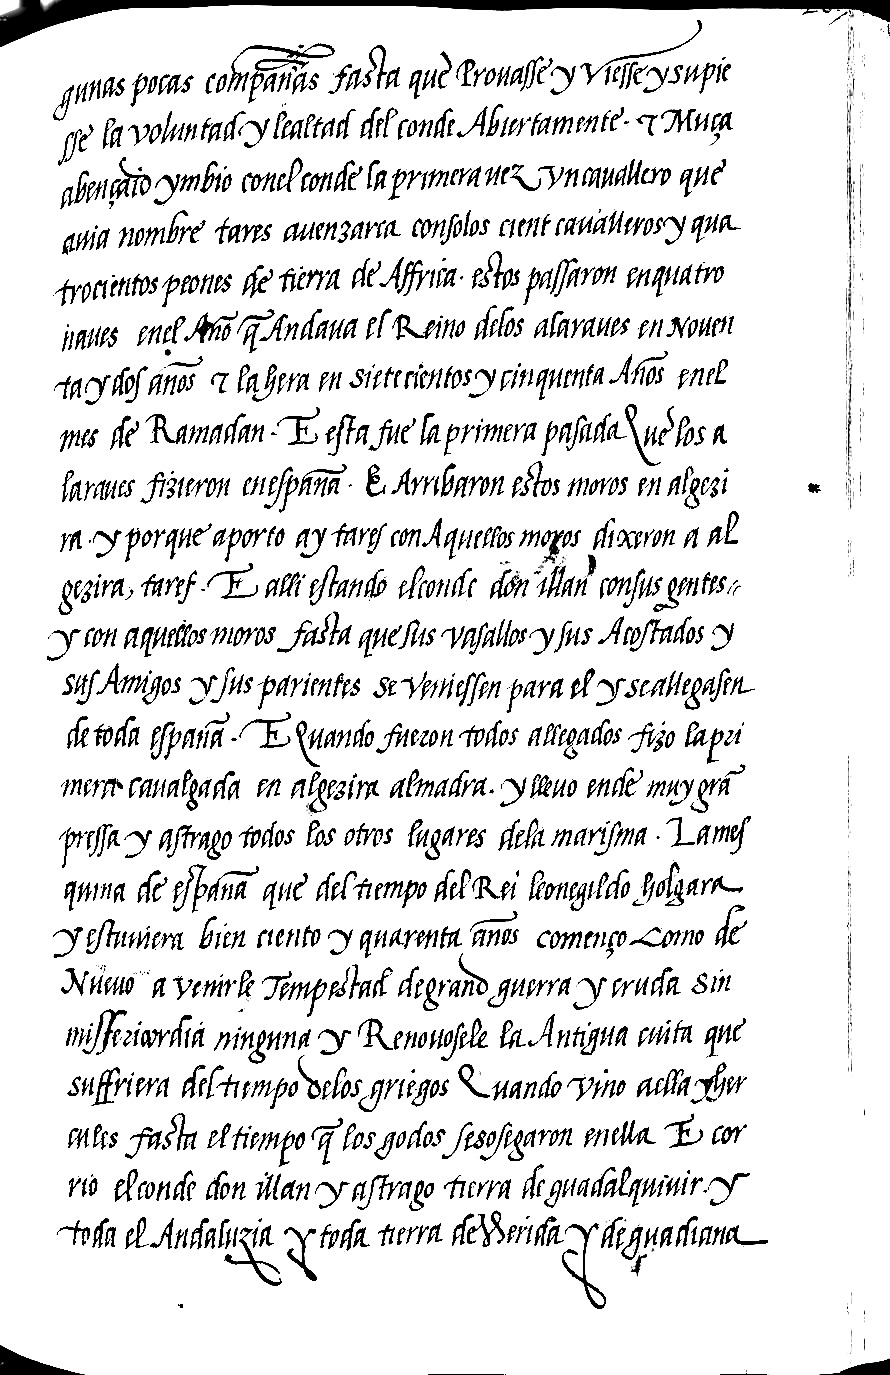 gunas pocas compañas fasta que Prouasse y Viesse y supie
sse la voluntad y lealtad del conde Abiertamente. τ Muça
abençaid ymbio con el conde la primera uez Vn cauallero que
auia nombre tares auenzarca con solos cient cauàlleros y qua
trocientos peones de tierra de Affrica. estos passaron en quatro
naues en el Año q̃ Andaua el Reino delos alaraues en Nouen
ta y dos años τ la hera en sietecientos y cinquenta Años en el
mes de Ramadan. E esta fue la primera pasada Que los a
laraues fizieron en españa. E Arribaron estos moros en algezi
ra. y porque aporto ay tares con Aquellos moros dixeron a al
gezira, taref. E alli estando el conde don illan con sus gentes
y con aquellos moros fasta que sus vasallos y sus Acostados y
sus Amigos y sus parientes se viniessen para el y se allegasen
de toda españa. E Quando fueron todos allegados fizo la pri
mera caualgada en algezira almadra. y lleuo ende muy grã
pressa y astrago todos los otros lugares dela marisma. La mes
quina de españa que del tiempo del Rei leonegildo holgara
y estuuiera bien ciento y quarenta años començo como de
Nueuo a venirle Tempestad de grand guerra y cruda sin
missericordia ninguna y Renouosele la Antigua cuita que
suffriera del tiempo delos griegos Quando vino a ella yher
cules fasta el tiempo q̃ los godos sesosegaron en ella E cor
rio el conde don illan y astrago tierra de guadalquiuir. y
toda el Andaluzia y toda tierra de Merida y de guadiana